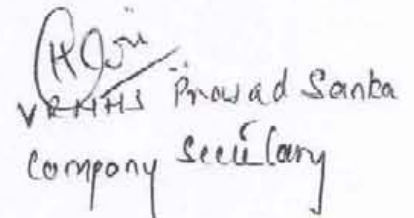 VRMHS Prasad Sanka
Company Secretary